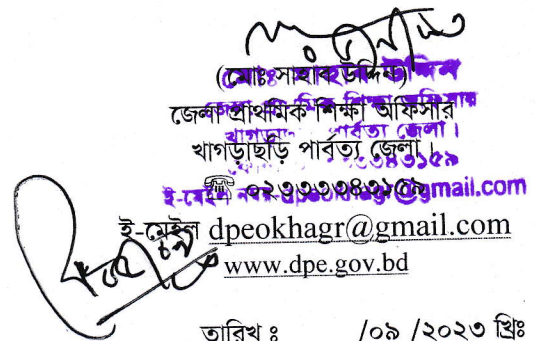 (মোঃ সাহাব উদ্দিন)
জেলা প্রাথমিক শিক্ষা অফিসার
খাগড়াছড়ি পার্বত্য জেলা।
☎ ০২৩৩৩৩৪৩১৫৯
ই-মেইল dpeokhagr@gmail.com
www.dpe.gov.bd
তারিখ ঃ /০৯ /২০২৩ খ্রিঃ